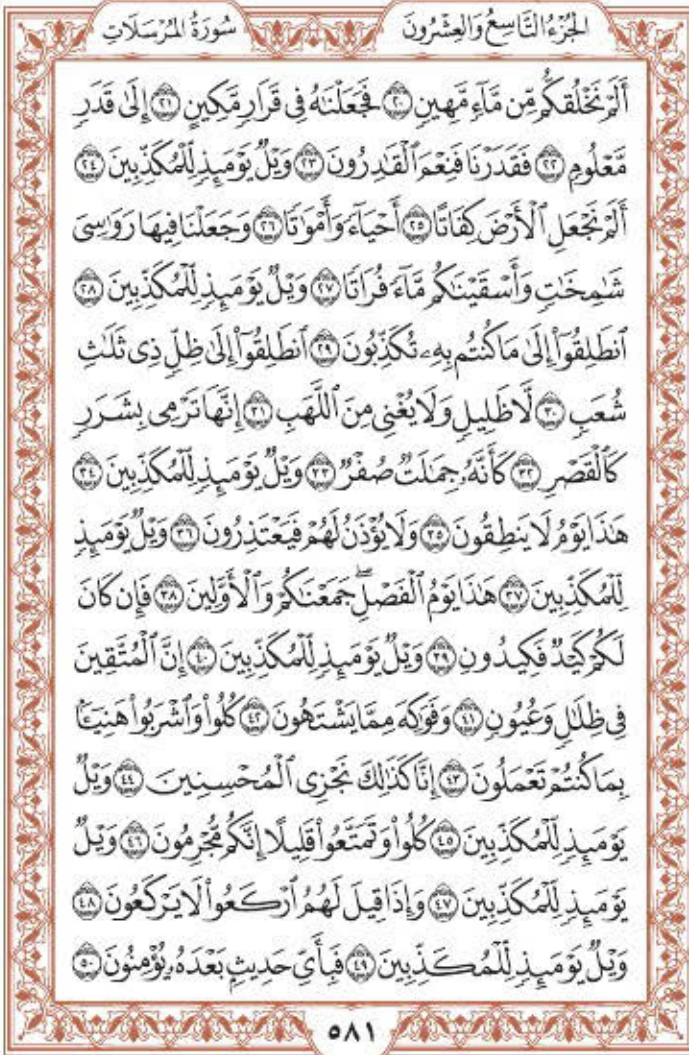 الجُزْءُ التَّاسِعُ وَالعِشْرُونَ
سُورَةُ المُرْسَلَاتِ
أَلَمْ نَخْلُقكُّم مِّن مَّآءٖ مَّهِينٖ ٢٠ فَجَعَلْنَٰهُ فِى قَرَارٖ مَّكِينٍ ٢١ إِلَىٰ قَدَرٖ
مَّعْلُومٖ ٢٢ فَقَدَرْنَا فَنِعْمَ ٱلْقَٰدِرُونَ ٢٣ وَيْلٞ يَوْمَئِذٖ لِّلْمُكَذِّبِينَ ٢٤
أَلَمْ نَجْعَلِ ٱلْأَرْضَ كِفَاتًا ٢٥ أَحْيَآءٗ وَأَمْوَٰتٗا ٢٦ وَجَعَلْنَا فِيهَا رَوَٰسِىَ
شَٰمِخَٰتٖ وَأَسْقَيْنَٰكُم مَّآءٗ فُرَاتٗا ٢٧ وَيْلٞ يَوْمَئِذٖ لِّلْمُكَذِّبِينَ ٢٨
ٱنطَلِقُوٓا۟ إِلَىٰ مَا كُنتُم بِهِۦ تُكَذِّبُونَ ٢٩ ٱنطَلِقُوٓا۟ إِلَىٰ ظِلّٖ ذِى ثَلَٰثِ
شُعَبٖ ٣٠ لَّا ظَلِيلٖ وَلَا يُغْنِى مِنَ ٱللَّهَبِ ٣١ إِنَّهَا تَرْمِى بِشَرَرٖ
كَٱلْقَصْرِ ٣٢ كَأَنَّهُۥ جِمَٰلَتٞ صُفْرٞ ٣٣ وَيْلٞ يَوْمَئِذٖ لِّلْمُكَذِّبِينَ ٣٤
هَٰذَا يَوْمُ لَا يَنطِقُونَ ٣٥ وَلَا يُؤْذَنُ لَهُمْ فَيَعْتَذِرُونَ ٣٦ وَيْلٞ يَوْمَئِذٖ
لِّلْمُكَذِّبِينَ ٣٧ هَٰذَا يَوْمُ ٱلْفَصْلِۖ جَمَعْنَٰكُمْ وَٱلْأَوَّلِينَ ٣٨ فَإِن كَانَ
لَكُمْ كَيْدٞ فَكِيدُونِ ٣٩ وَيْلٞ يَوْمَئِذٖ لِّلْمُكَذِّبِينَ ٤٠ إِنَّ ٱلْمُتَّقِينَ
فِى ظِلَٰلٖ وَعُيُونٖ ٤١ وَفَوَٰكِهَ مِمَّا يَشْتَهُونَ ٤٢ كُلُوا۟ وَٱشْرَبُوا۟ هَنِيٓـَٔۢا
بِمَا كُنتُمْ تَعْمَلُونَ ٤٣ إِنَّا كَذَٰلِكَ نَجْزِى ٱلْمُحْسِنِينَ ٤٤ وَيْلٞ
يَوْمَئِذٖ لِّلْمُكَذِّبِينَ ٤٥ كُلُوا۟ وَتَمَتَّعُوا۟ قَلِيلًا إِنَّكُم مُّجْرِمُونَ ٤٦ وَيْلٞ
يَوْمَئِذٖ لِّلْمُكَذِّبِينَ ٤٧ وَإِذَا قِيلَ لَهُمُ ٱرْكَعُوا۟ لَا يَرْكَعُونَ ٤٨
وَيْلٞ يَوْمَئِذٖ لِّلْمُكَذِّبِينَ ٤٩ فَبِأَىِّ حَدِيثِۭ بَعْدَهُۥ يُؤْمِنُونَ ٥٠
٥٨١